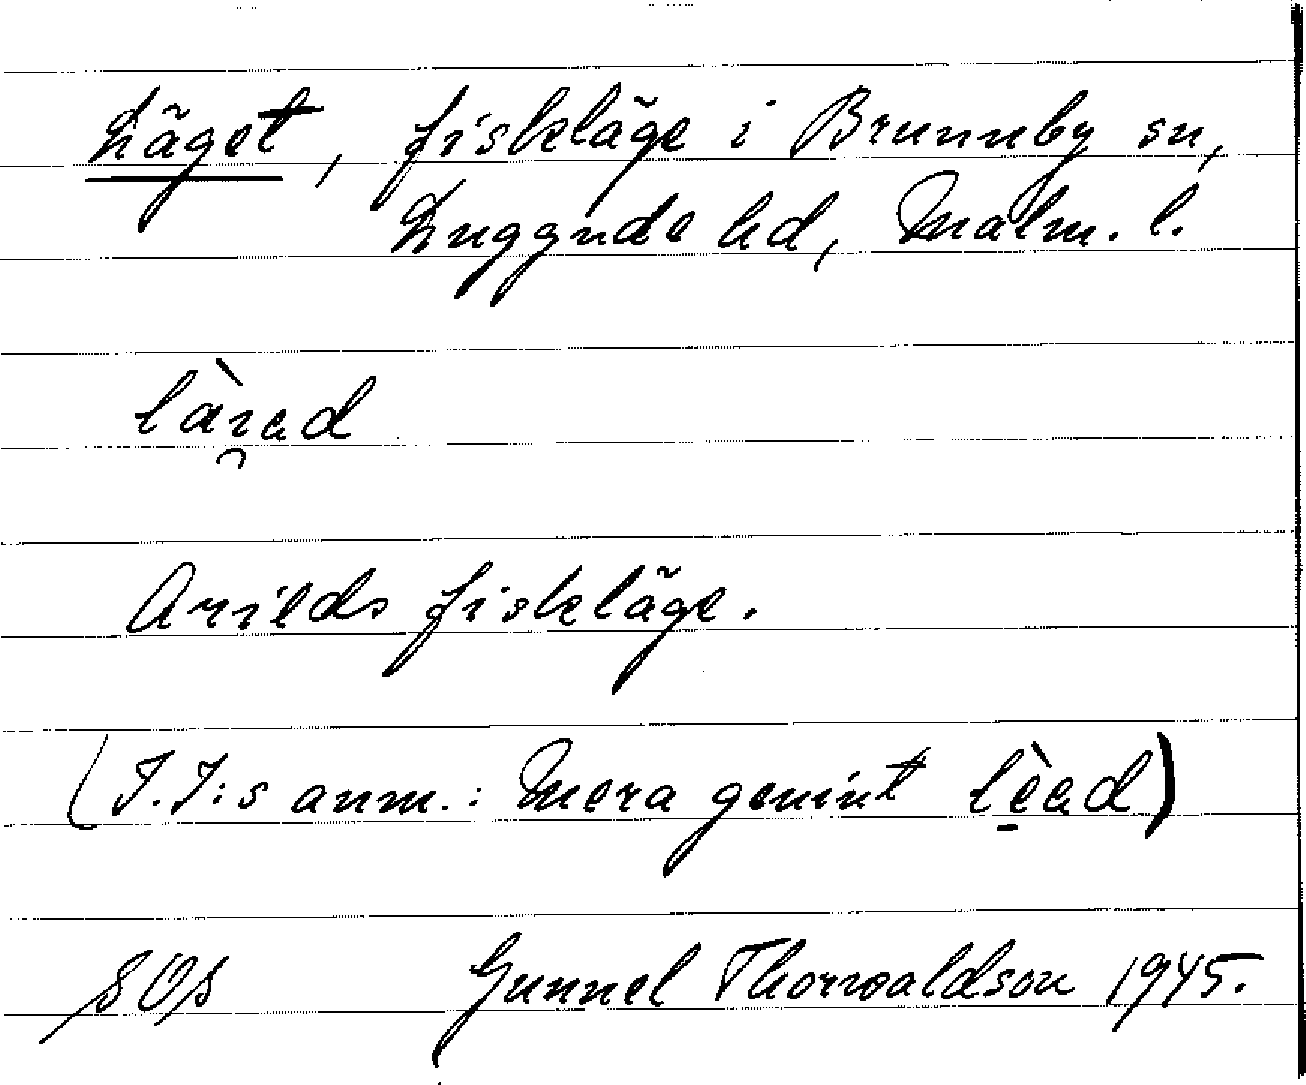 Läget, fiskläge i Brunnby sn,
Luggude hd, Malm. l.
Arilds fiskläge.
(I.I:s anm.: Mera genuint lèad)
SOS Gunnel Thorvaldson 1945.